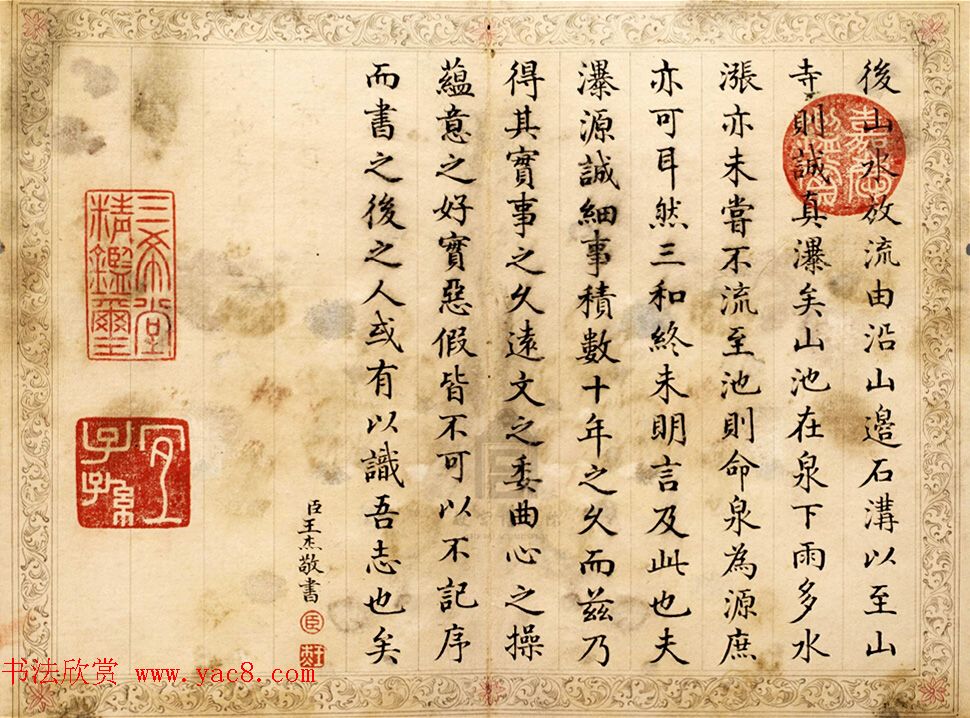 後山水放流由沿山邉石溝以至山
寺則誠真瀑矣山池在泉下雨多水
漲亦未嘗不流至池則命泉為源庶
亦可耳然三和終未明言及此也夫
瀑源誠細事積數十年之久而茲乃
得其實事之久遠文之委曲心之操
蘊意之好實惡假皆不可以不記序
而書之後之人或有以識吾志也矣
臣王杰敬書
臣
嘉慶鑑賞
三希堂精鑑璽
宜子孫
书法欣赏 www.yac8.com